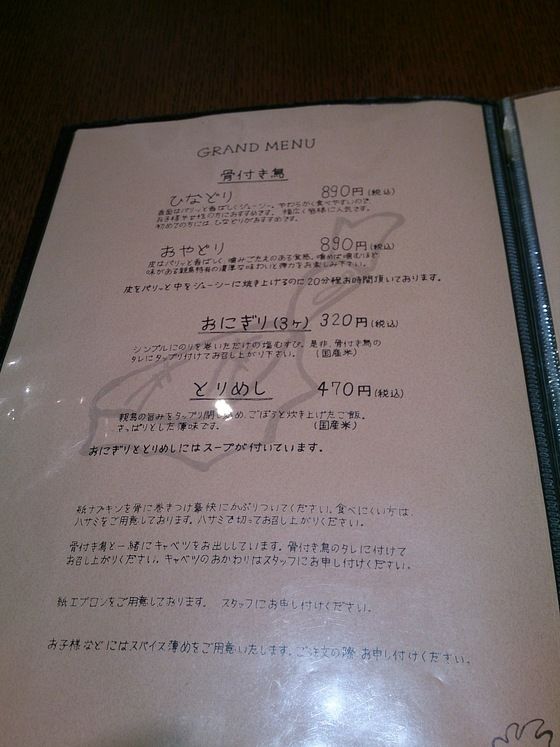 GRAND MENU
骨付き鳥
ひなどり 890円(税込)
表面はパリッと香ばしくジューシー。やわらかく食べやすいので、
お子様や女性の方におすすめです。 幅広く皆様に人気です。
初めての方には、ひなどりがおすすめです。
おやどり 890円(税込)
皮はパリッと香ばしく、噛みごたえのある食感。噛めば噛むほど
味がある親鳥特有の濃厚な味わいと弾力をお楽しみ下さい。
皮をパリッと中をジューシーに焼き上げるのに20分程お時間頂いております。
おにぎり(3ヶ) 320円(税込)
シンプルにのりを巻いただけの塩むすび。是非、骨付き鳥の
タレにタップリ付けてお召し上がり下さい。 (国産米)
とりめし 470円(税込)
親鳥の旨みをタップリ閉じ込め、ごぼうと炊き上げたご飯。
さっぱりとした薄味です。 (国産米)
おにぎりととりめしにはスープが付いています。
紙ナプキンを骨に巻きつけ豪快にかぶりついてください。食べにくい方は、
ハサミをご用意しております。ハサミで切ってお召し上がりください。
骨付き鳥と一緒にキャベツをお出ししています。骨付き鳥のタレに付けて
お召し上がりください。キャベツのおかわりはスタッフにお申し付けください。
紙エプロンをご用意しております。 スタッフにお申し付けください。
お子様などにはスパイス薄めをご用意いたします。ご注文の際 お申し付けください。